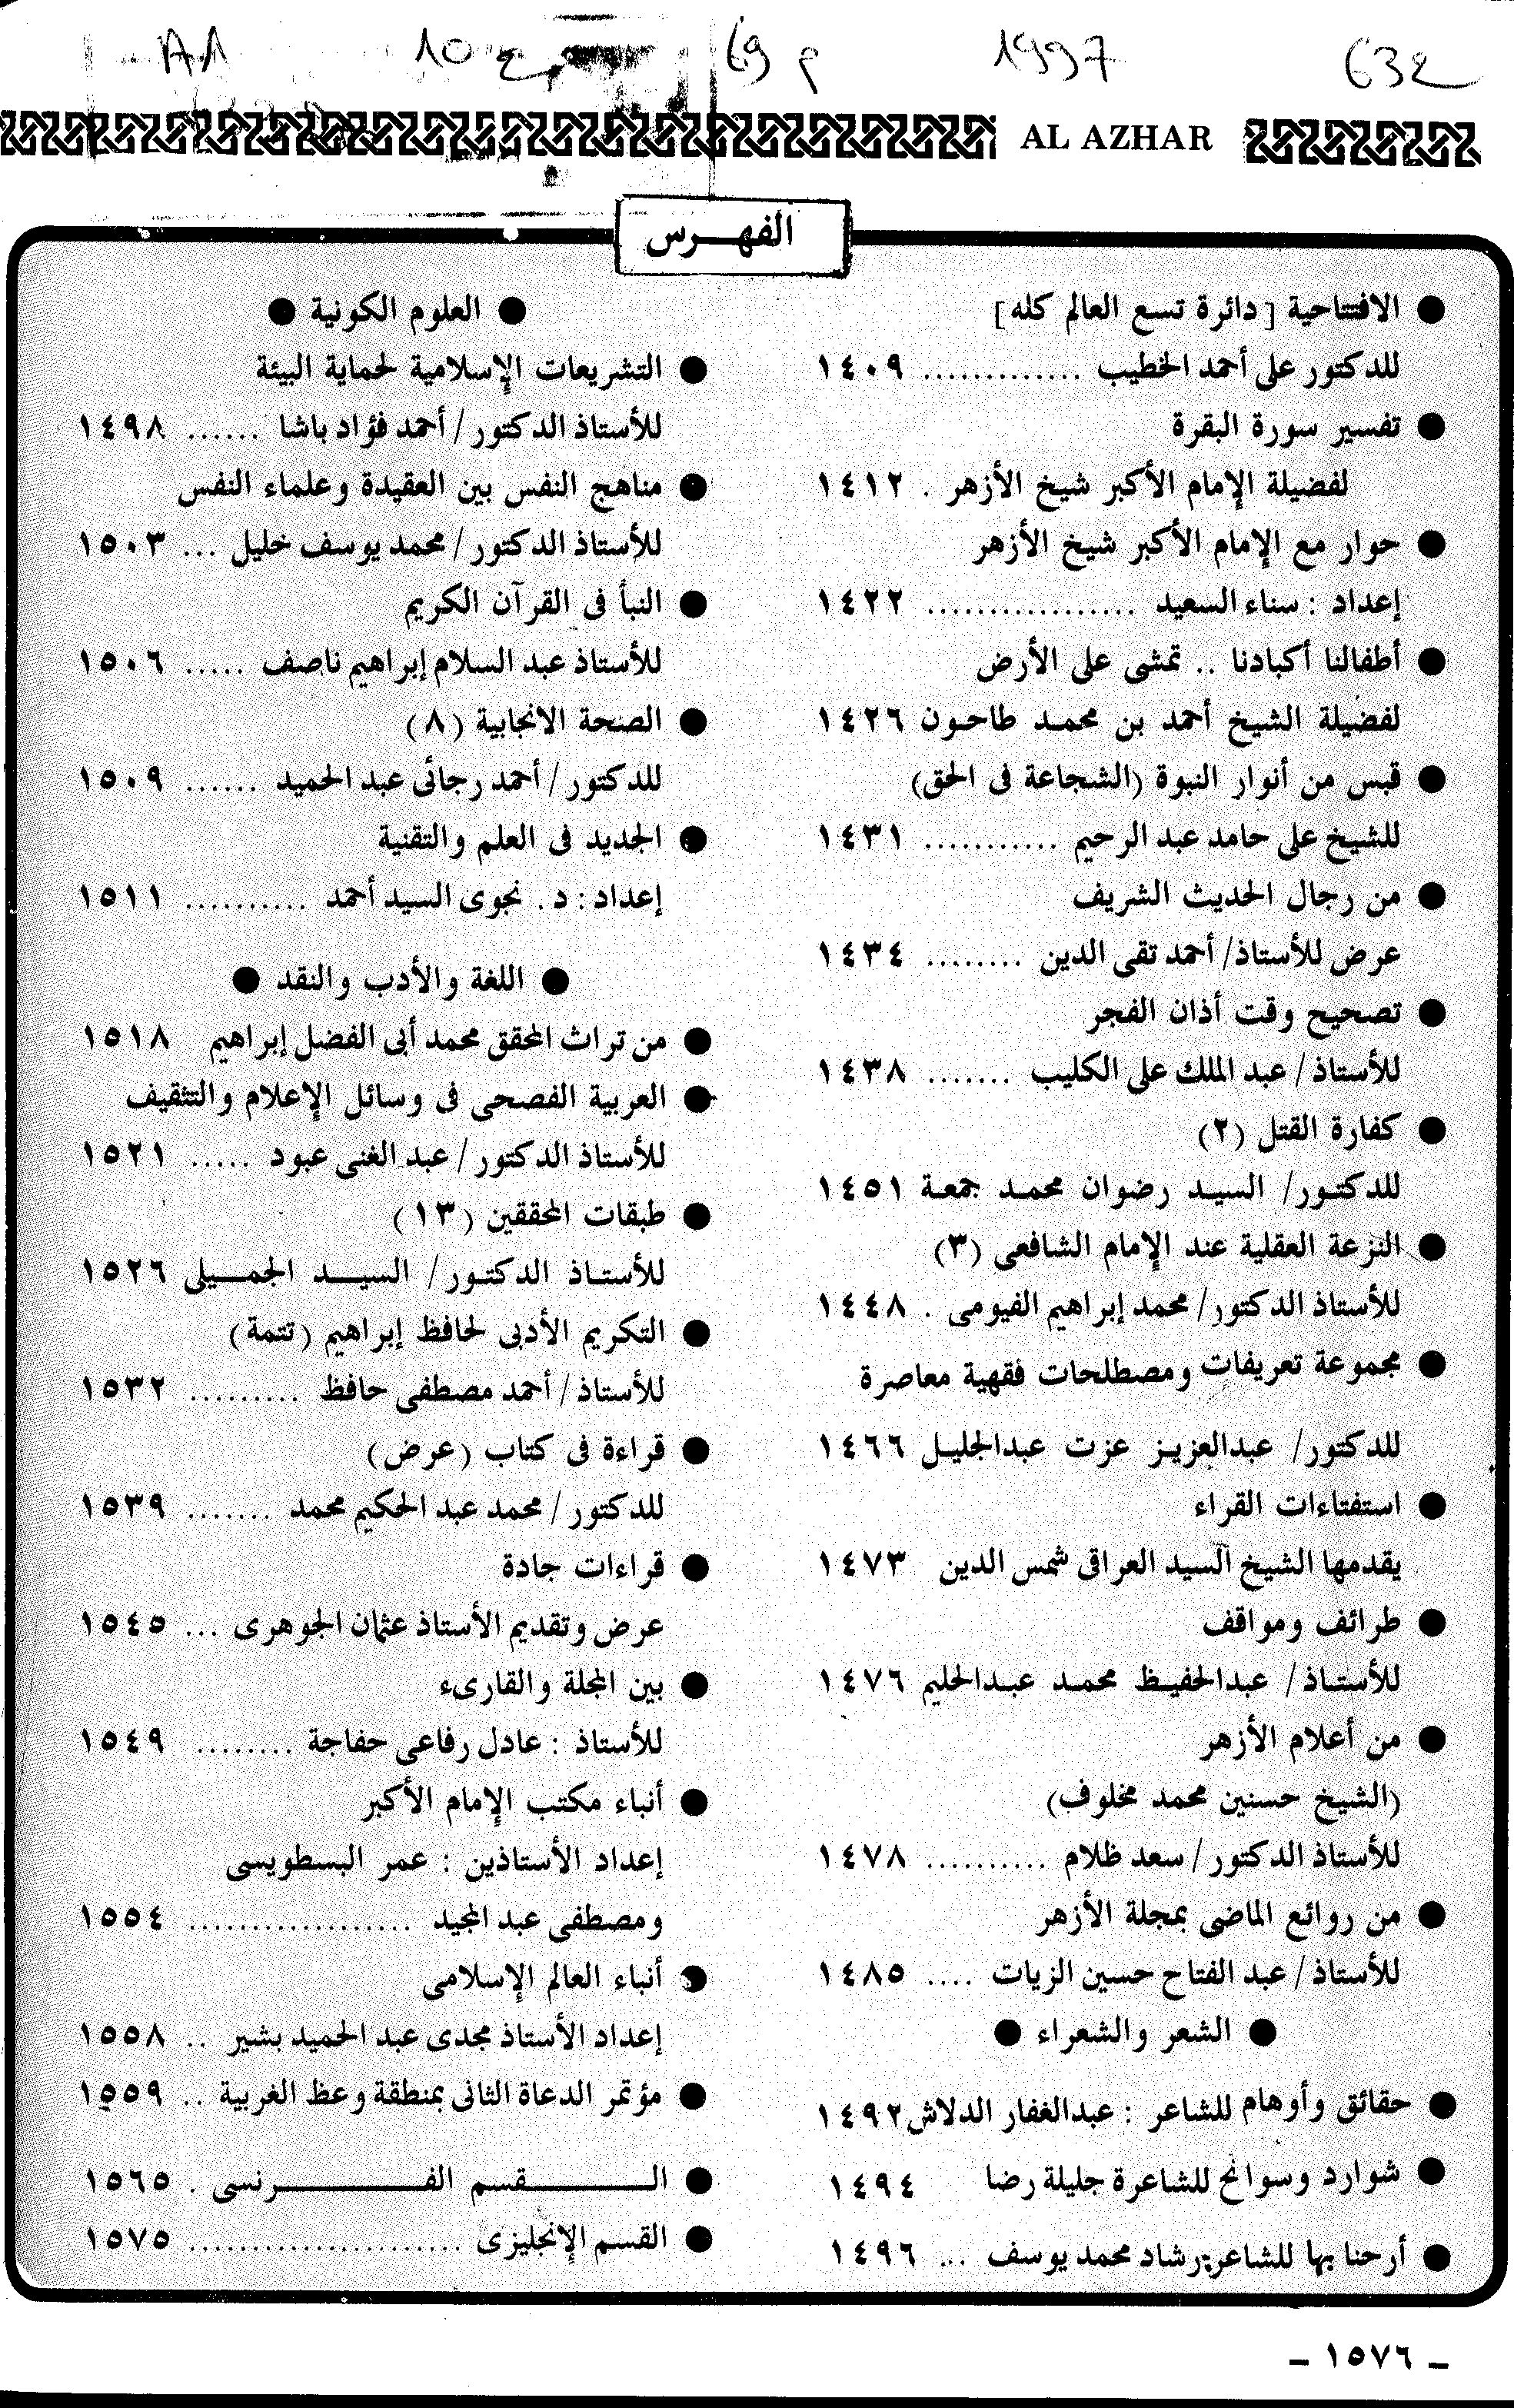 AL AZHAR
الفهــرس
● الافتتاحية [ دائرة تسع العالم كله ]
للدكتور على أحمد الخطيب ............. ١٤٠٩
● تفسير سورة البقرة
لفضيلة الإمام الأكبر شيخ الأزهر . ١٤١٢
● حوار مع الإمام الأكبر شيخ الأزهر
إعداد : سناء السعيد ................. ١٤٢٢
● أطفالنا أكبادنا .. تمشى على الأرض
لفضيلة الشيخ أحمد بن محمد طاحون ١٤٢٦
● قبس من أنوار النبوة (الشجاعة فى الحق)
للشيخ على حامد عبد الرحيم ........... ١٤٣١
● من رجال الحديث الشريف
عرض للأستاذ/ أحمد تقى الدين ........ ١٤٣٤
● تصحيح وقت أذان الفجر
للأستاذ / عبد الملك على الكليب ....... ١٤٣٨
● كفارة القتل (٢)
للدكتور/ السيد رضوان محمد جمعة ١٤٥١
● النزعة العقلية عند الإمام الشافعى (٣)
للأستاذ الدكتور/ محمد إبراهيم الفيومى . ١٤٤٨
● مجموعة تعريفات ومصطلحات فقهية معاصرة
للدكتور/ عبدالعزيز عزت عبدالجليل ١٤٦٦
● استفتاءات القراء
يقدمها الشيخ السيد العراقى شمس الدين ١٤٧٣
● طرائف ومواقف
للأستاذ / عبدالحفيظ محمد عبدالحليم ١٤٧٦
● من أعلام الأزهر
(الشيخ حسنين محمد مخلوف)
للأستاذ الدكتور / سعد ظلام .......... ١٤٧٨
● من روائع الماضى بمجلة الأزهر
للأستاذ / عبد الفتاح حسين الزيات .... ١٤٨٥
● الشعر والشعراء ●
● حقائق وأوهام للشاعر : عبدالغفار الدلاش ١٤٩٢
● شوارد وسوانح للشاعرة جليلة رضا ١٤٩٤
● أرحنا بها للشاعر: رشاد محمد يوسف ... ١٤٩٦
● العلوم الكونية ●
● التشريعات الإسلامية لحماية البيئة
للأستاذ الدكتور / أحمد فؤاد باشا ...... ١٤٩٨
● مناهج النفس بين العقيدة وعلماء النفس
للأستاذ الدكتور / محمد يوسف خليل ... ١٥٠٣
● النبأ فى القرآن الكريم
للأستاذ عبد السلام إبراهيم ناصف ..... ١٥٠٦
● الصحة الانجابية (٨)
للدكتور / أحمد رجائى عبد الحميد ...... ١٥٠٩
● الجديد فى العلم والتقنية
إعداد : د . نجوى السيد أحمد .......... ١٥١١
● اللغة والأدب والنقد ●
● من تراث المحقق محمد أبى الفضل إبراهيم ١٥١٨
● العربية الفصحى فى وسائل الإعلام والتثقيف
للأستاذ الدكتور / عبد الغنى عبود ..... ١٥٢١
● طبقات المحققين (١٣)
للأستاذ الدكتور/ السيد الجميلى ١٥٢٦
● التكريم الأدبى لحافظ إبراهيم (تتمة)
للأستاذ / أحمد مصطفى حافظ ......... ١٥٣٢
● قراءة فى كتاب (عرض)
للدكتور / محمد عبد الحكيم محمد ....... ١٥٣٩
● قراءات جادة
عرض وتقديم الأستاذ عثمان الجوهرى ... ١٥٤٥
● بين المجلة والقارىء
للأستاذ : عادل رفاعى حفاجة ........ ١٥٤٩
● أنباء مكتب الإمام الأكبر
إعداد الأستاذين : عمر البسطويسى
ومصطفى عبد المجيد .................. ١٥٥٤
● أنباء العالم الإسلامى
إعداد الأستاذ مجدى عبد الحميد بشير .. ١٥٥٨
● مؤتمر الدعاة الثانى بمنطقة وعظ الغربية .. ١٥٥٩
● الـــقسم الفـــرنسى . ١٥٦٥
● القسم الإنجليزى ...................... ١٥٧٥
- ١٥٧٦ -